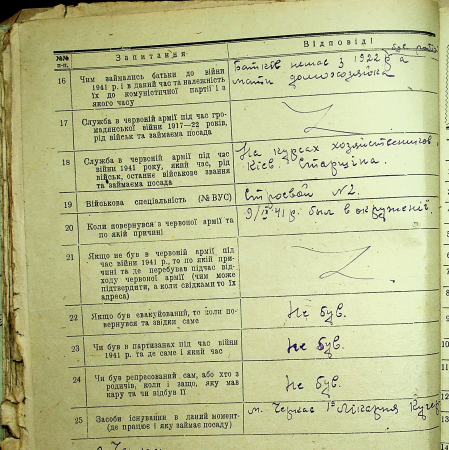 №№ п-п.
Запитання
Відповіді
16
Чим займались батьки до війни
1941 р. і в даний час та належність
їх до комуністичної партії і з
якого часу
Батьків немає з 1922 р. а
мати домохозяйка
17
Служба в червоній армії під час гро-
мадянської війни 1917—22 років,
рід військ та займаєма посада
Z
18
Служба в червоній армії під час
війни 1941 року, який час, рід
військ, останнє військове звання
та займаєма посада
На курсах хозяйственников.
Київ. Старшина.
19
Військова спеціальність (№ ВУС)
Строевой №2.
20
Коли повернувся з червоної армії та
по якій причині
9/IX 41 р. был в окружении.
21
Якщо не був в червоній армії під
час війни 1941 р., то по якій при-
чині та де перебував підчас від-
ходу червоної армії (чим може
підтвердити, а коли свідками то їх
адреса)
Z
22
Якщо був евакуйований, то коли по-
вернувся та звідки саме
Не був.
23
Чи був в партизанах під час війни
1941 р. та де саме і який час
Не був.
24
Чи був репресований сам, або хто з
родичів, коли і защо, яку мав
кару та чи відбув її
Не був.
25
Засоби існування в даний момент
(де працює і яку займає посаду)
м. Черкас